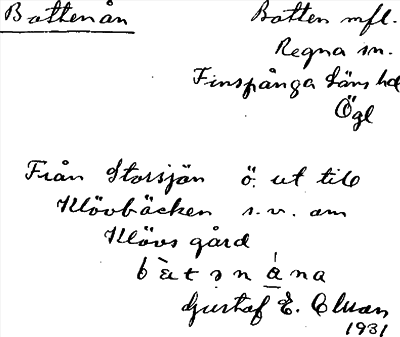 Battenån
Batten mfl.
Regna sn.
Finspånga läns hd
Ögl
Från Storsjön ö. ut till
Klövbäcken s.v. om
Klövs gård
bàtənána
Gustaf E.
1931